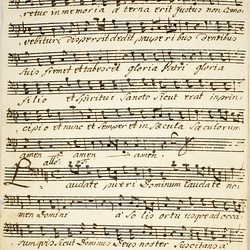 retur in memoria æterna erit justus non como
vebitur dispersit dedit pauperibus dentibus
suis fremet et tabescet gloria Patri gloria
filio et Spiritui Sancto sicut erat in prin
cipio et nunc et semper et in sæcula sæculorum
amen amen amen.
all:o
Laudate pueri Dominum laudate no
men Domini a Solis ortu usque ad occa
sum quis sicut Dominus Deus noster suscitans a